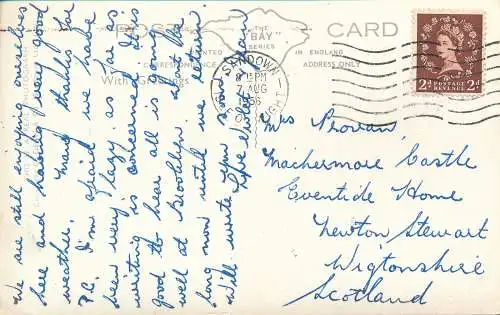 POST CARD
THE
"BAY"
SERIES
PRINTED IN ENGLAND
CORRESPONDENCE
ADDRESS ONLY
With Greetings
SANDOWN
PM
7 AUG
1956
ISLE OF WIGHT
2D POSTAGE REVENUE 2D
We are still enjoying ourselves
here and having very good
weather. Many thanks for
P.C. I'm afraid we have
been very lazy as far as
writing is concerned. It is
good to hear all is going
well at Brooklea. Won't be
long now until we return.
Will write you soon.
Love
Mrs Prowan,
Machermore Castle
Eventide Home
Newton Stewart
Wigtonshire
Scotland